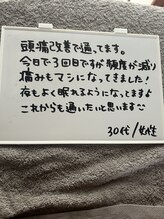 頭痛改善で通ってます。
今日で3回目ですが頻度が減り
痛みもマシになってきました!
夜もよく眠れるようになってます♪
これからも通いたいと思います
30代/女性